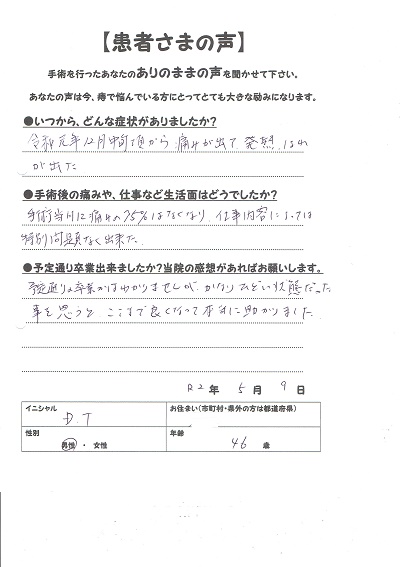 【患者さまの声】
手術を行ったあなたのありのままの声を聞かせて下さい。
あなたの声は今、痔で悩んでいる方にとってとても大きな励みになります。
●いつから、どんな症状がありましたか?
令和元年12月中旬頃から 痛みが出て 発熱 はれ
が出た
●手術後の痛みや、仕事など生活面はどうでしたか?
手術当日に痛みの75%はなくなり、仕事内容によっては
特別問題なく出来た。
●予定通り卒業出来ましたか?当院の感想があればお願いします。
予定通りの卒業かはわかりませんが、かなりひどい状態だった
事を思うと ここまで良くなって本当に助かりました。
R2 年 5 月 9 日
イニシャル お住まい(市町村・県外の方は都道府県)
D.T
性別 年齢
男性 ・ 女性 46 歳